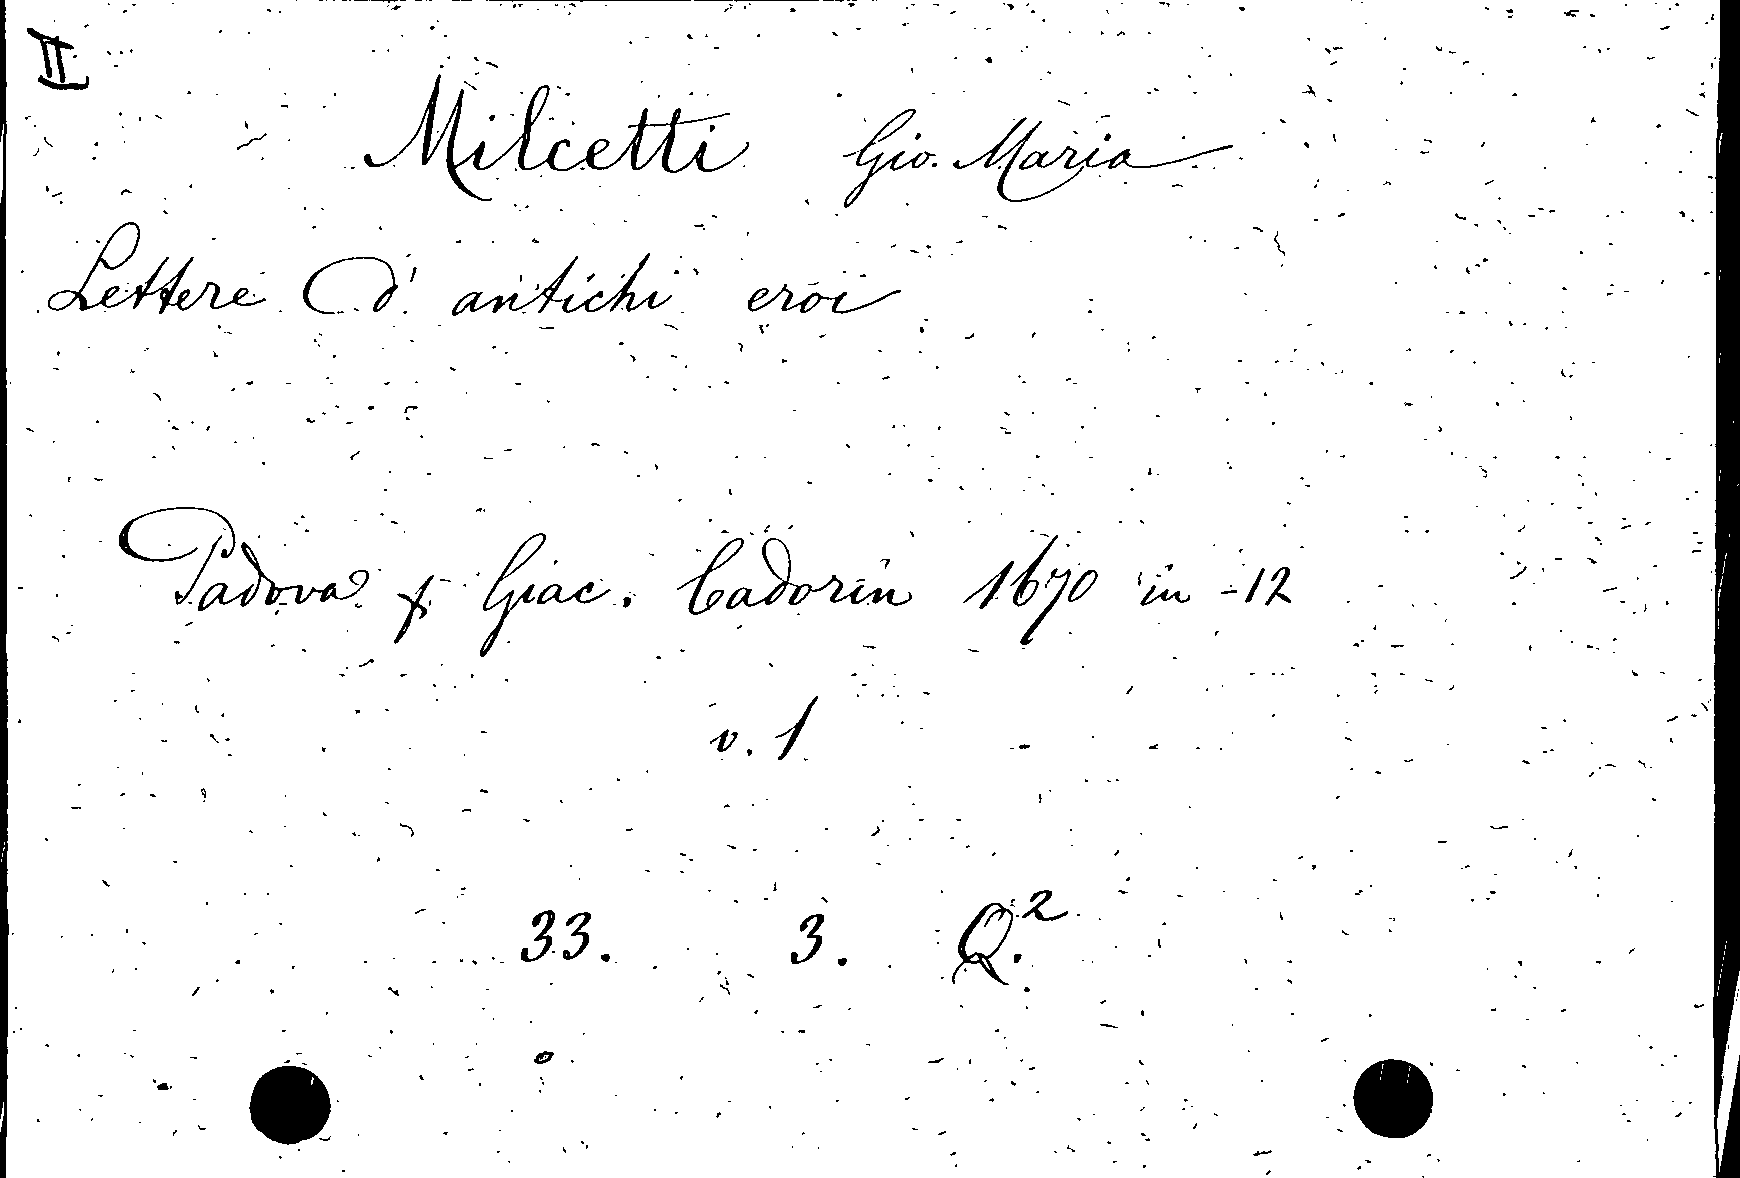 II
Milcetti Gio. Maria
Lettere d' antichi eroi
Padova p. Giac. Cadorin 1670 in -12
v. 1
33. 3. Q.2